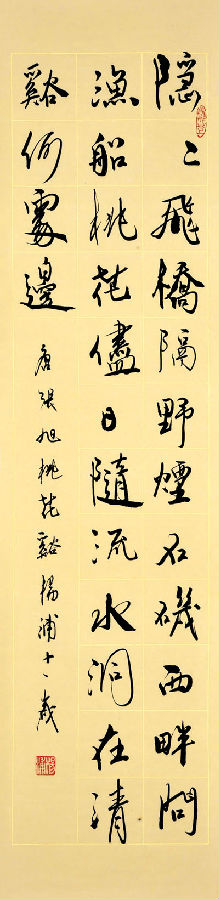 隠〻飛橋隔野煙石磯西畔問
漁船桃花儘日隨流水洞在清
谿何處邊
唐張旭桃花谿 楊浦十一歲